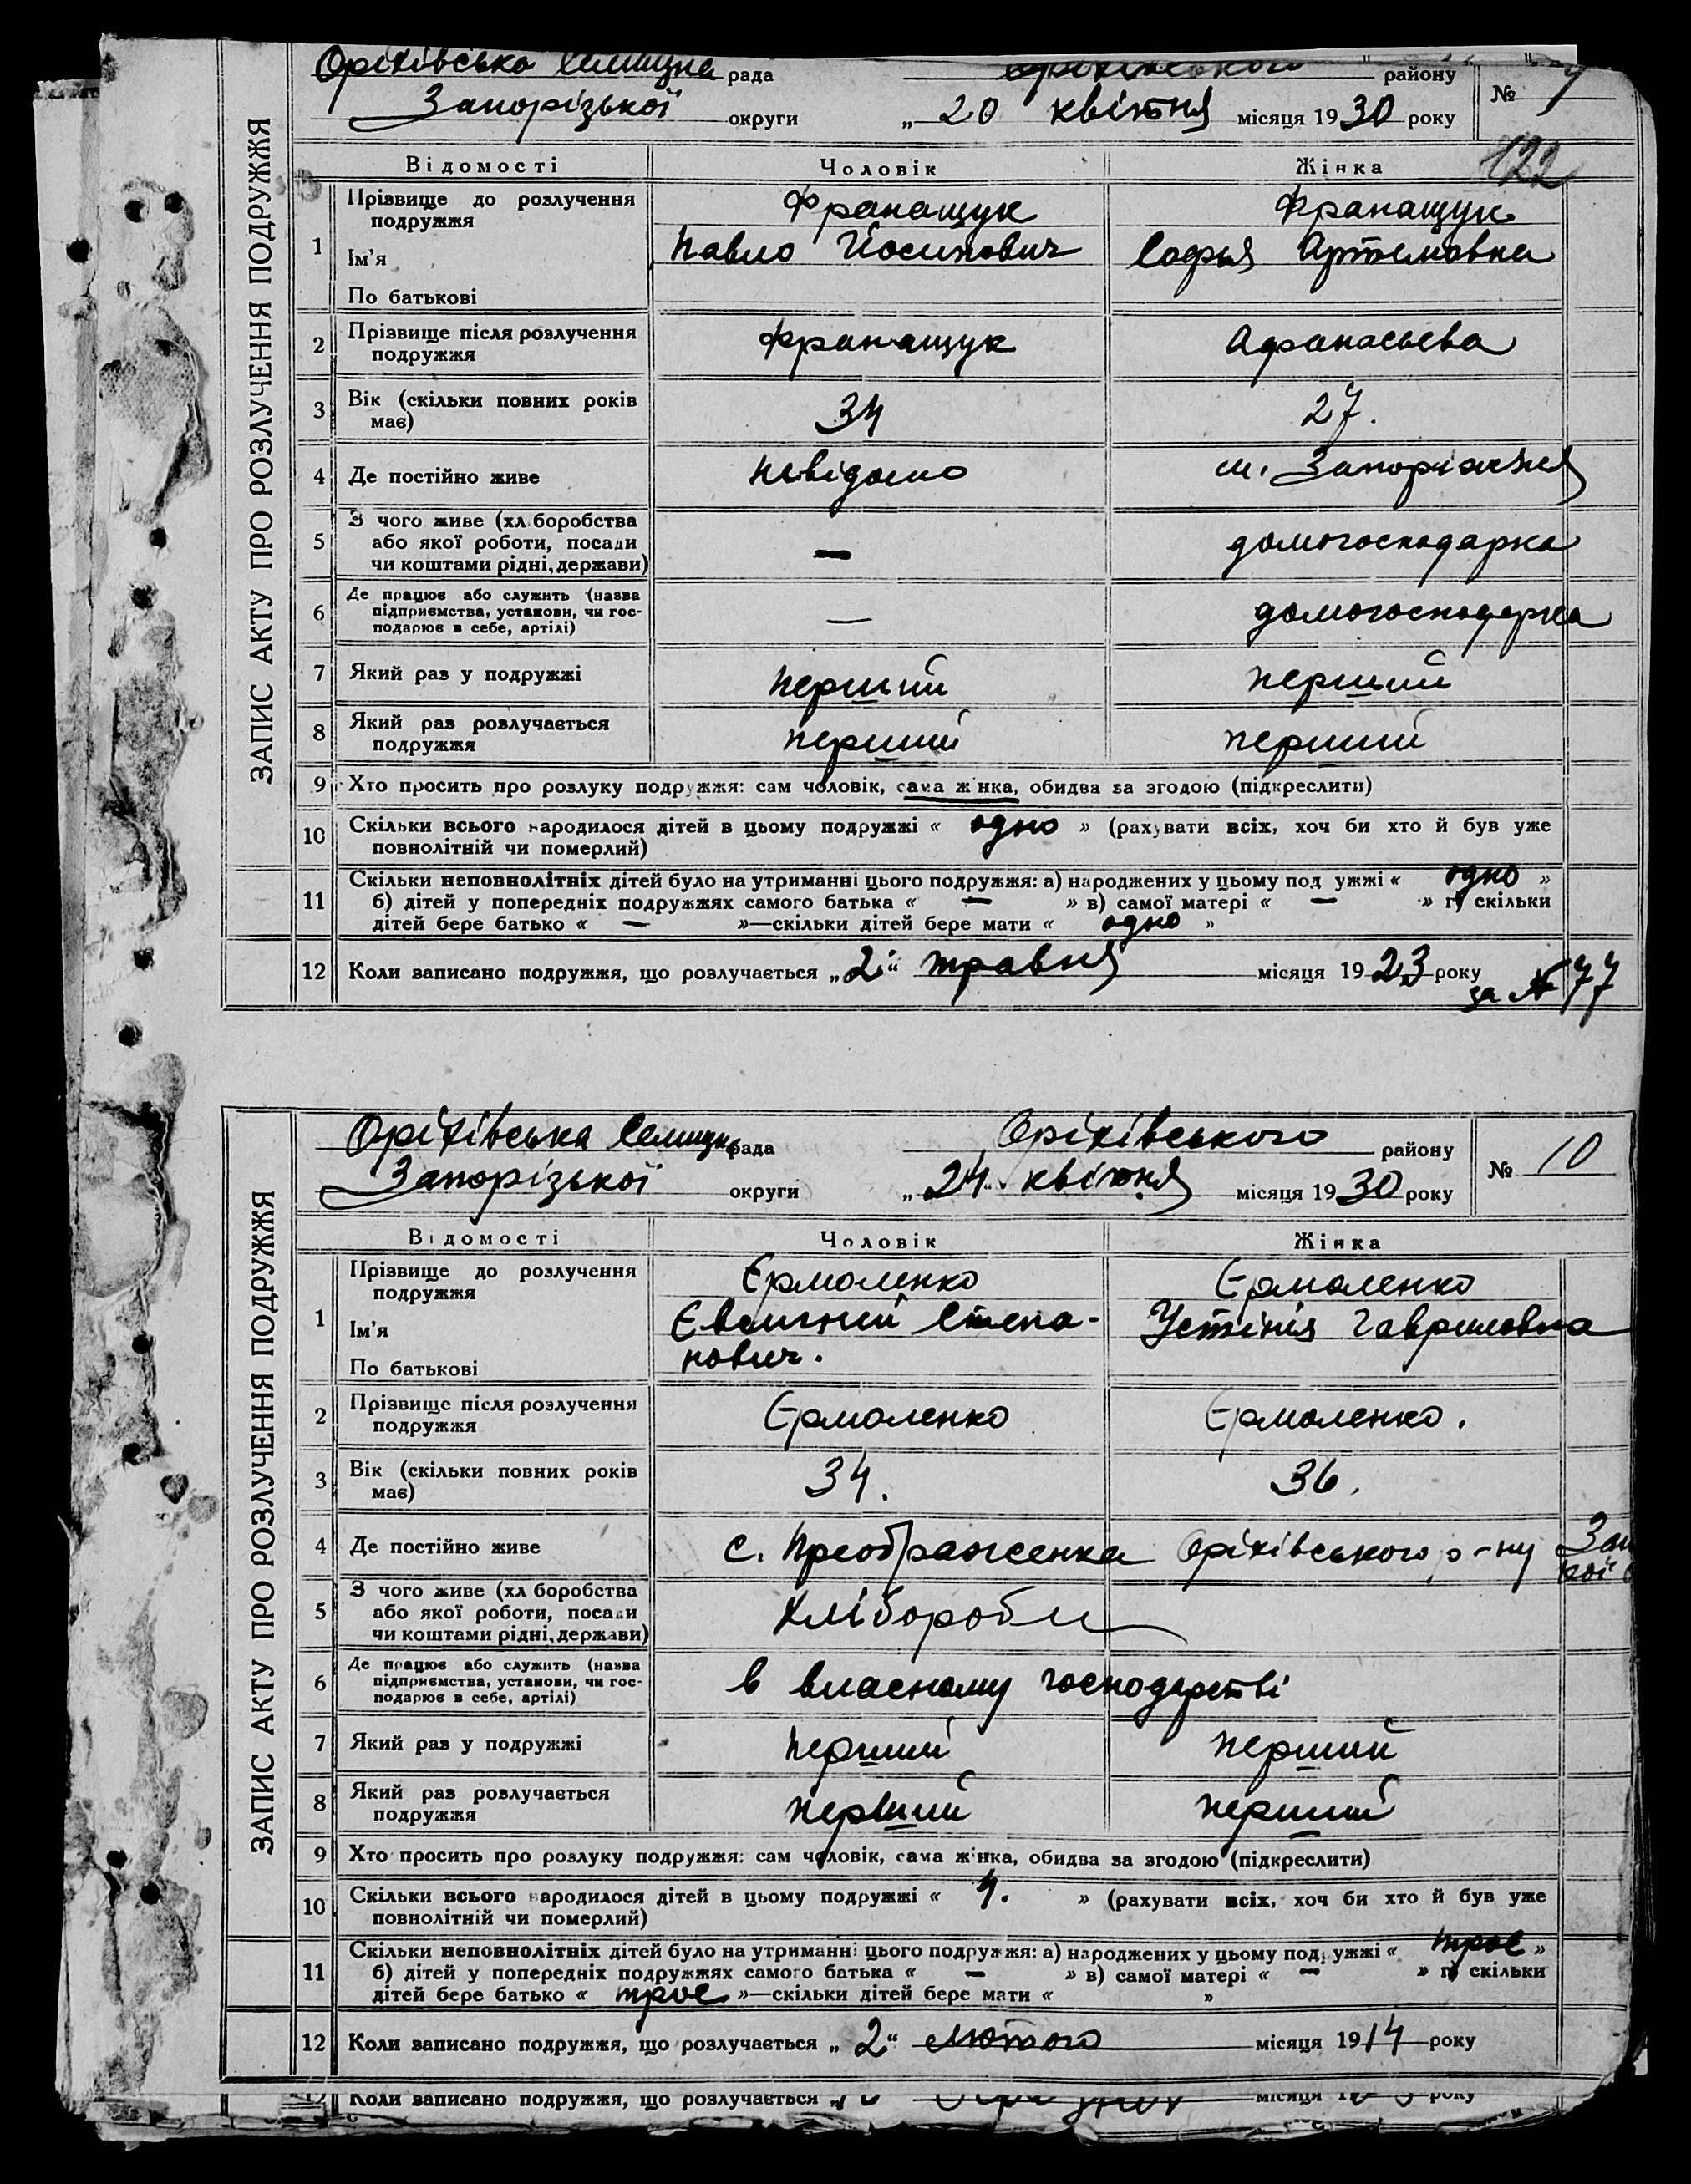 ЗАПИС АКТУ ПРО РОЗЛУЧЕННЯ ПОДРУЖЖЯ
Оріхівська Селищна рада Оріхівського району
Запорізької округи „ 20 квітня місяця 1930 року №
122
Відомості Чоловік Жінка
1 Прізвище до розлучення Франащук Франащук
подружжя
Ім’я Павло Йосипович Софья Артемовна
По батькові
2 Прізвище після розлучення Франащук Афанасьева
подружжя
3 Вік (скільки повних років 34 27.
має)
4 Де постійно живе Невідомо м. Запоріжжя
5 З чого живе (хл.боробства — домогосподарка
або якої роботи, посади
чи коштами рідні, держави)
6 Де працює або служить (назва — домогосподарка
підприємства, установи, чи гос-
подарює в себе, артілі)
7 Який раз у подружжі перший перший
8 Який раз розлучається перший перший
подружжя
9 Хто просить про розлуку подружжя: сам чоловік, сама жінка, обидва за згодою (підкреслити)
10 Скільки всього народилося дітей в цьому подружжі « одно » (рахувати всіх, хоч би хто й був уже
повнолітній чи померлий)
11 Скільки неповнолітніх дітей було на утриманні цього подружжя: а) народжених у цьому подружжі « одно »
б) дітей у попередніх подружжях самого батька « — » в) самої матері « — » г) скільки
дітей бере батько « — »—скільки дітей бере мати « одно »
12 Коли записано подружжя, що розлучається „ 2 “ травня місяця 1923 року
за № 77
ЗАПИС АКТУ ПРО РОЗЛУЧЕННЯ ПОДРУЖЖЯ
Оріхівська Селищна рада Оріхівського району
Запорізької округи „ 24 “ квітня місяця 1930 року № 10
Відомості Чоловік Жінка
1 Прізвище до розлучення Єрмоленко Єрмоленко
подружжя
Ім’я Євгений Степа- Устінія Гавриловна
По батькові нович.
2 Прізвище після розлучення Єрмоленко Єрмоленко.
подружжя
3 Вік (скільки повних років 34. 36.
має)
4 Де постійно живе с. Преображенка Оріхівського р-ну
5 З чого живе (хл боробства Хлібороби
або якої роботи, посади
чи коштами рідні, держави)
6 Де працює або служить (назва в власному господарстві
підприємства, установи, чи гос-
подарює в себе, артілі)
7 Який раз у подружжі перший перший
8 Який раз розлучається перший перший
подружжя
9 Хто просить про розлуку подружжя: сам чоловік, сама жінка, обидва за згодою (підкреслити)
10 Скільки всього народилося дітей в цьому подружжі « 4. » (рахувати всіх, хоч би хто й був уже
повнолітній чи померлий)
11 Скільки неповнолітніх дітей було на утриманні цього подружжя: а) народжених у цьому подружжі « троє »
б) дітей у попередніх подружжях самого батька « — » в) самої матері « — » г) скільки
дітей бере батько « троє »—скільки дітей бере мати « »
12 Коли записано подружжя, що розлучається „ 2 “ лютого місяця 1914 року
Коли записано подружжя, що розлучається „ місяця року